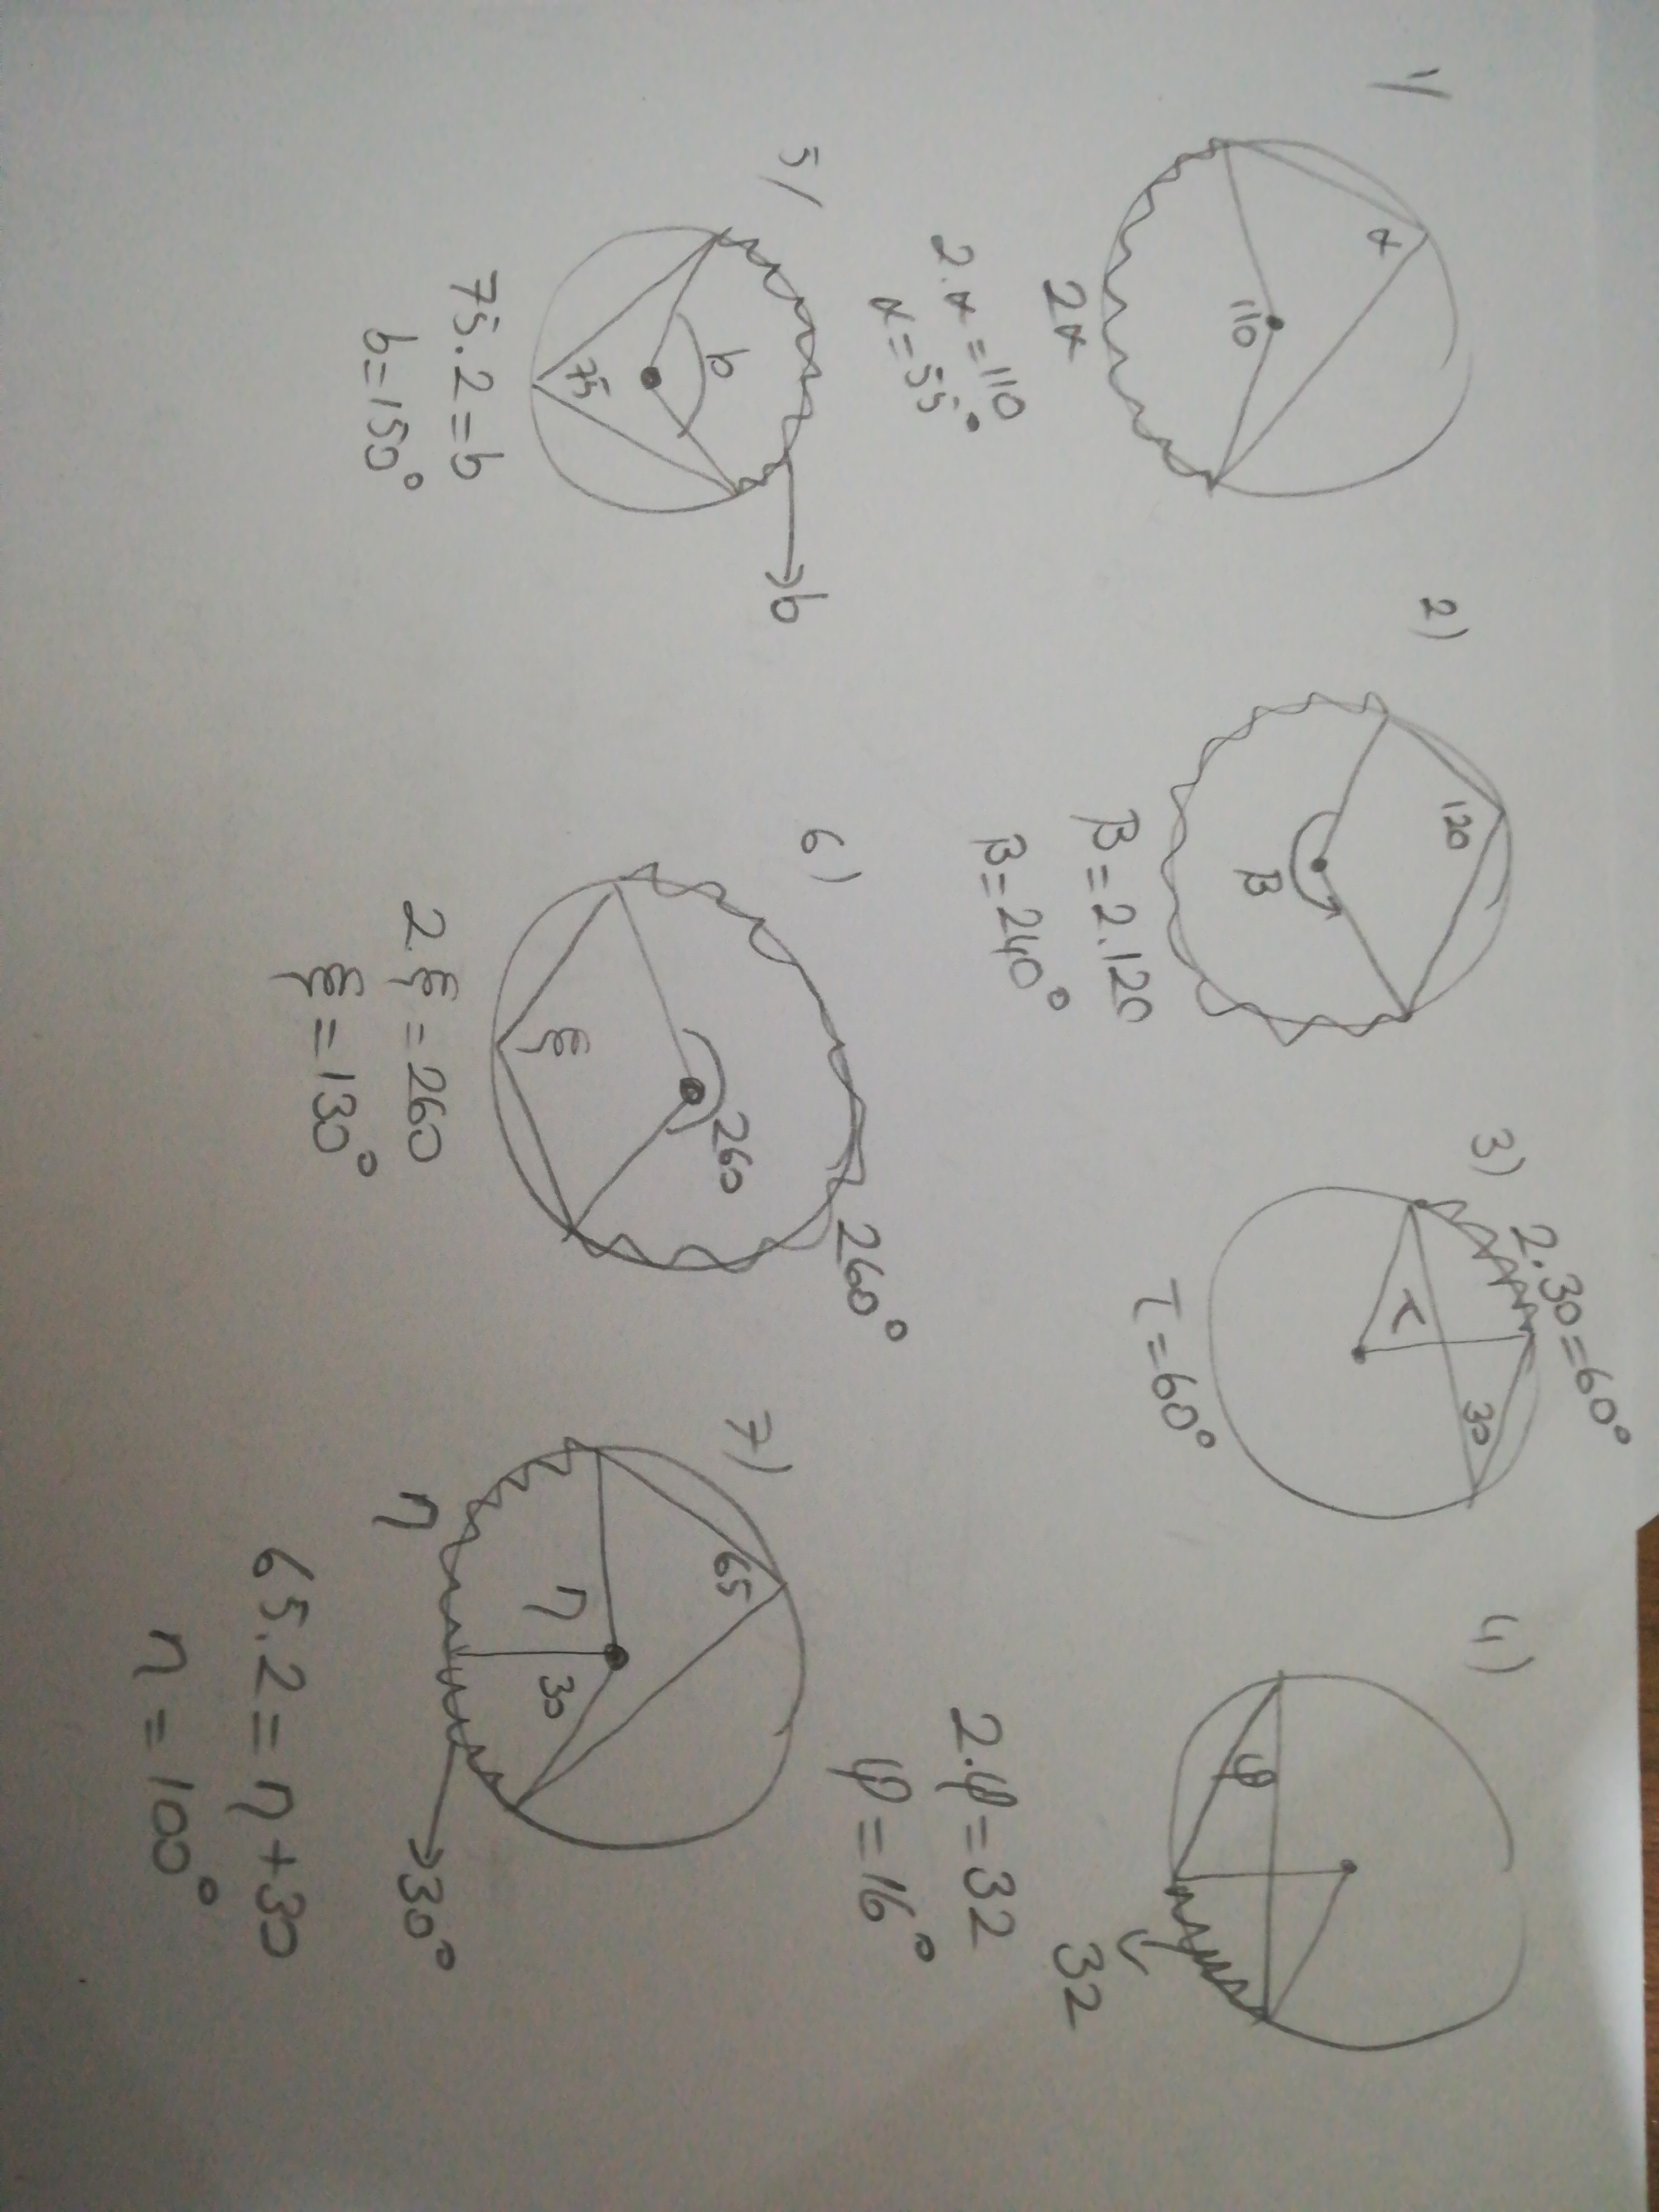 1)
α
110
2α
2.α=110
α=55°
2)
120
β
β=2.120
β=240°
3)
2.30=60°
30
τ
τ=60°
4)
φ
32
2.φ=32
φ=16°
5)
b
b
75
75.2=b
b=150°
6)
260
260°
ξ
2.ξ=260
ξ=130°
7)
65
η
30
η
30°
65.2=η+30
η=100°